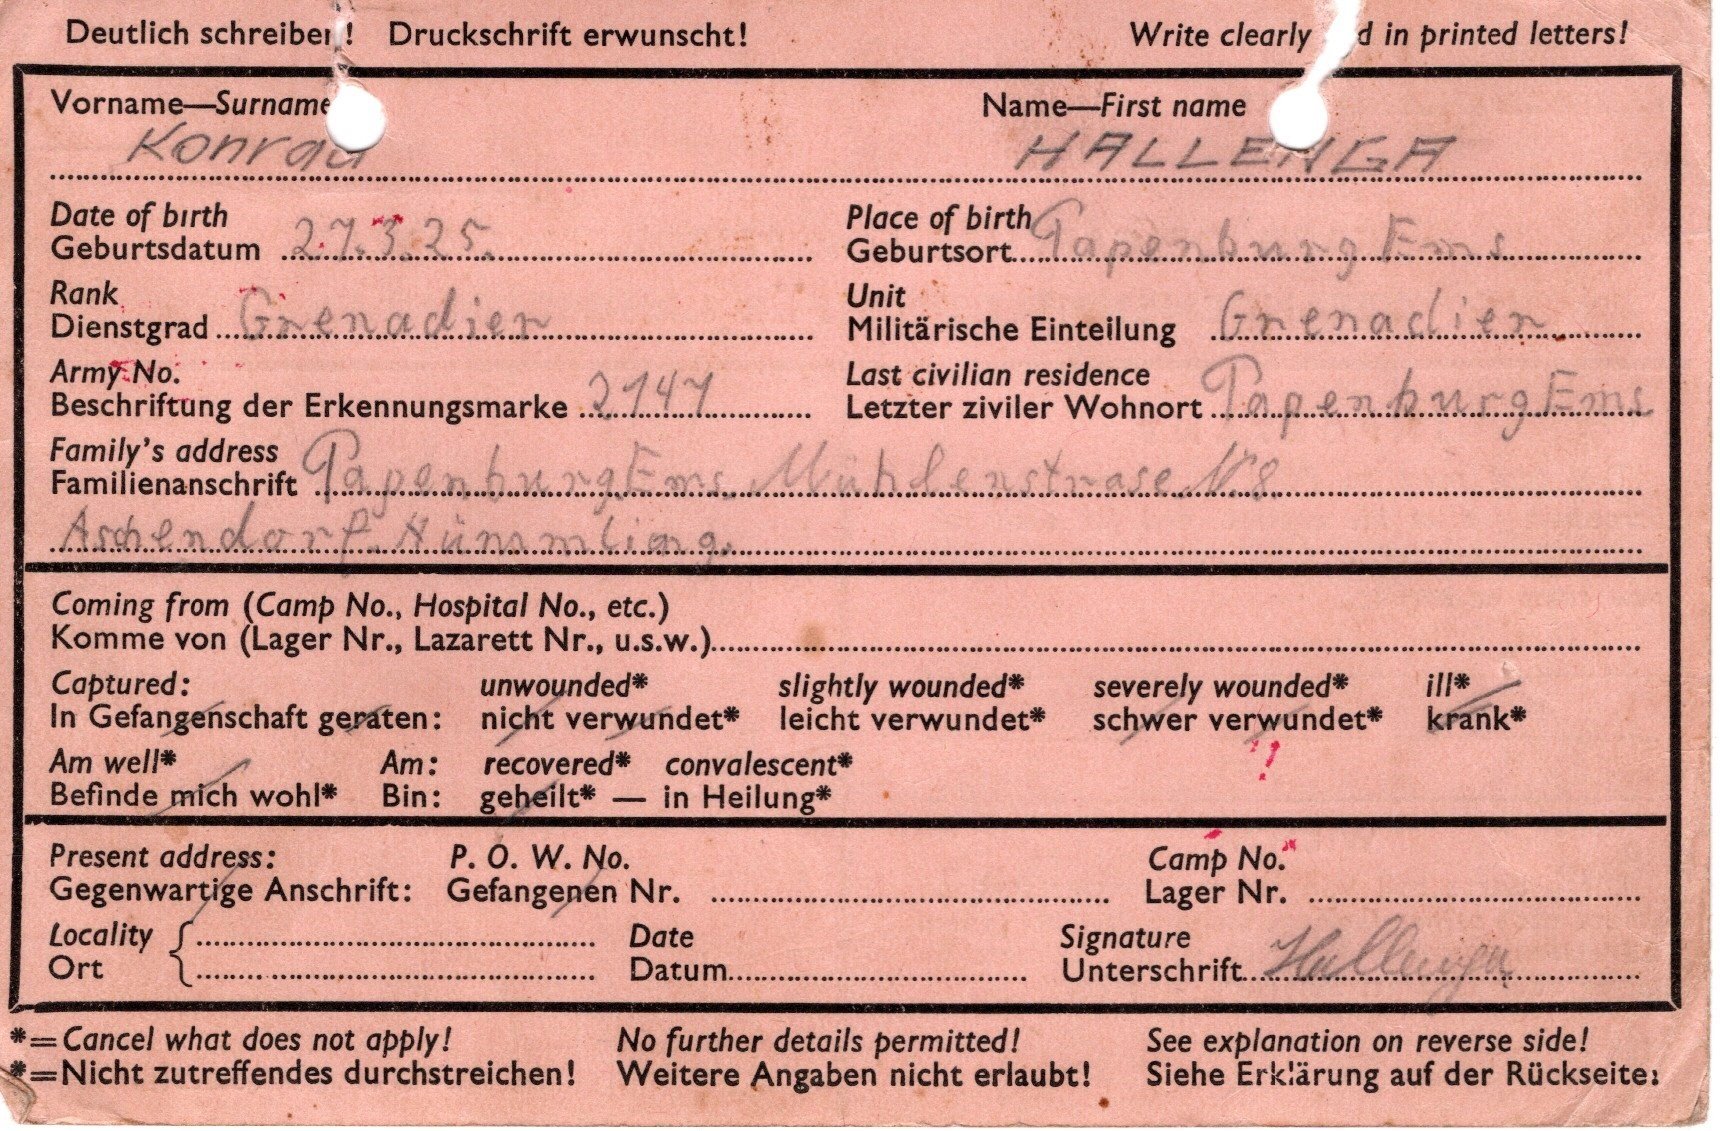 Deutlich schreiben! Druckschrift erwunscht! Write clearly d in printed letters!
Vorname—Surname Name—First name
Konrad HALLENGA
Date of birth Place of birth
Geburtsdatum 27.3.25. Geburtsort Papenburg Ems
Rank Unit
Dienstgrad Grenadier Militärische Einteilung Grenadier
Army No. Last civilian residence
Beschriftung der Erkennungsmarke 2147 Letzter ziviler Wohnort Papenburg Ems
Family's address
Familienanschrift Papenburg Ems. Mühlenstrase Nr. 8
Aschendorf. Hümmling.
Coming from (Camp No., Hospital No., etc.)
Komme von (Lager Nr., Lazarett Nr., u.s.w.)
Captured: unwounded* slightly wounded* severely wounded* ill*
In Gefangenschaft geraten: nicht verwundet* leicht verwundet* schwer verwundet* krank*
Am well* Am: recovered* convalescent*
Befinde mich wohl* Bin: geheilt* — in Heilung*
Present address: P. O. W. No. Camp No.
Gegenwartige Anschrift: Gefangenen Nr. Lager Nr.
Locality Date Signature
Ort Datum Unterschrift Hallenga
*=Cancel what does not apply! No further details permitted! See explanation on reverse side!
*=Nicht zutreffendes durchstreichen! Weitere Angaben nicht erlaubt! Siehe Erklärung auf der Rückseite!